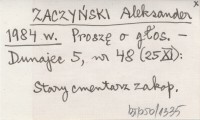 ZACZYŃSKI Aleksander
1984 w. Proszę o głos. -
Dunajec 5, nr 48 (25XI):
Stary cmentarz zakop.